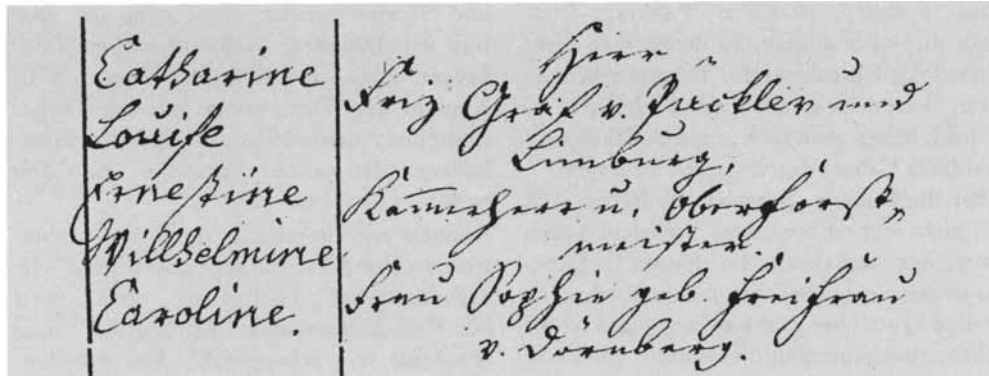 Catharine
Louise
Ernestine
Willhelmine
Caroline.
Herr
Friz Graf v. Pückler und
Limburg.
Kam̅erherr u. Oberforst„
meister
Frau Sophie geb. Freifrau
v. Dörnberg.